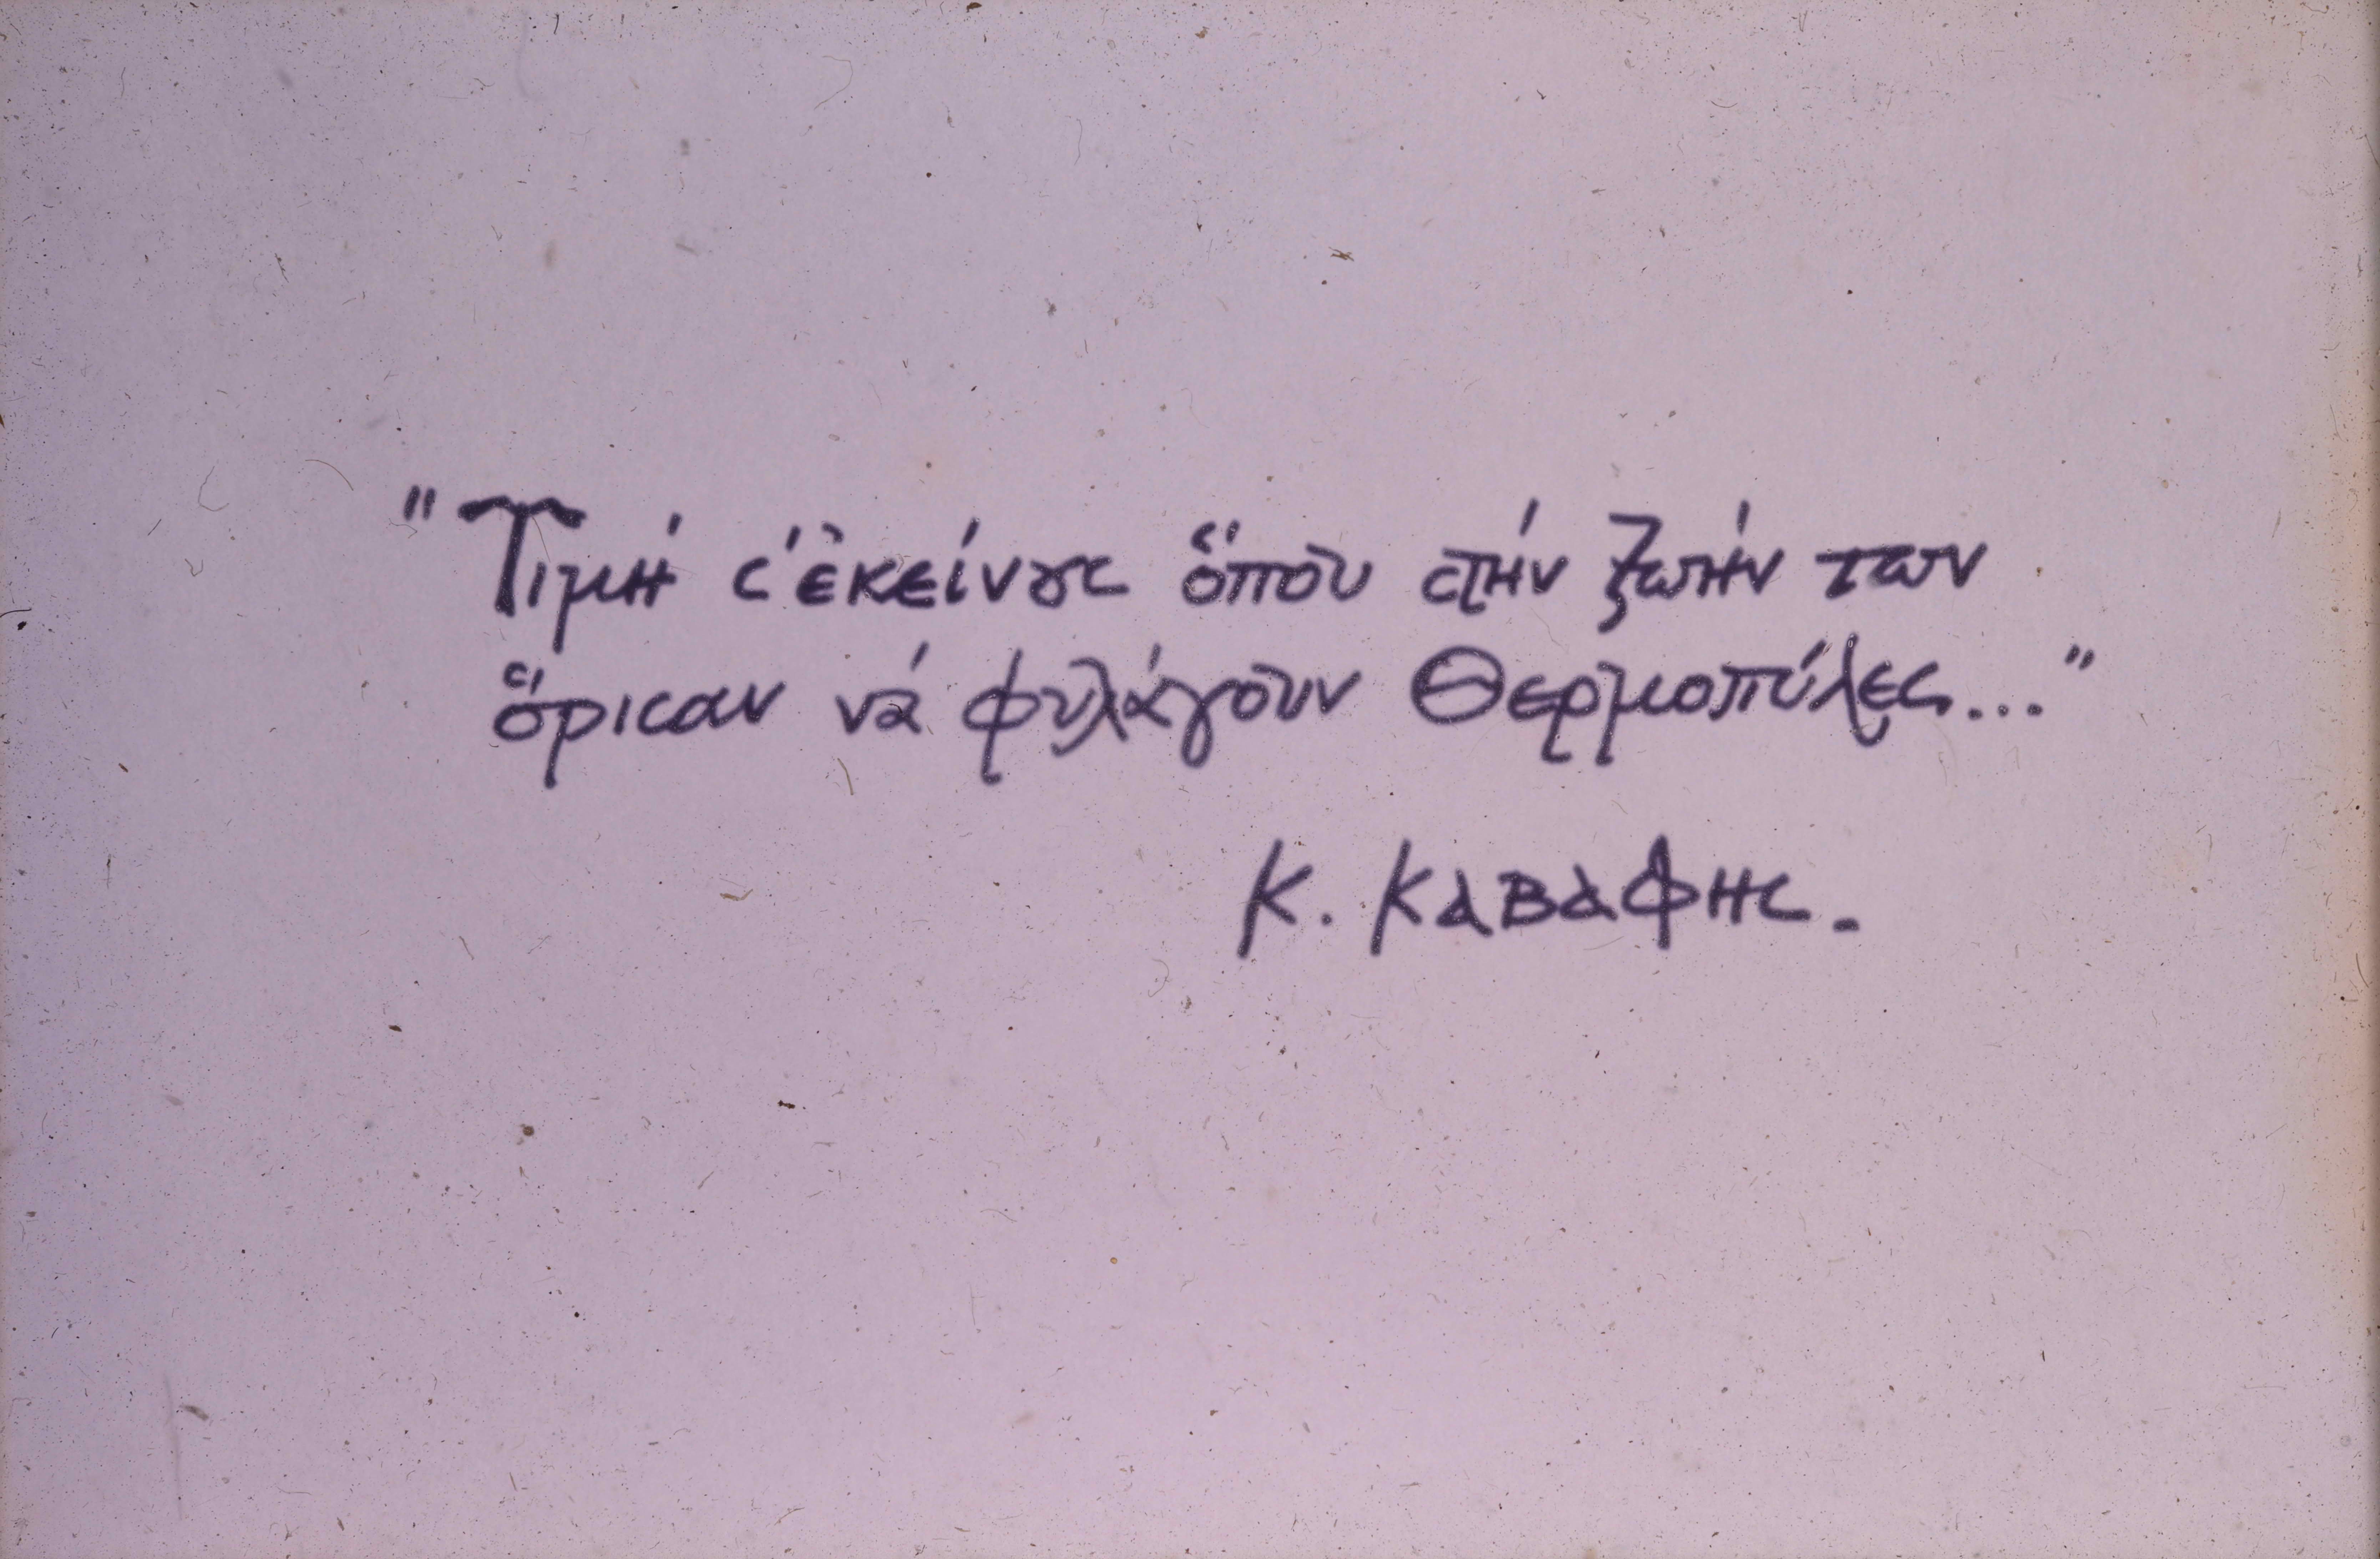 "Τιμή σ'ἐκείνους ὅπου στήν ζωήν των
ὅρισαν νά φυλάγουν Θερμοπύλες..."
Κ. Καβαφης.